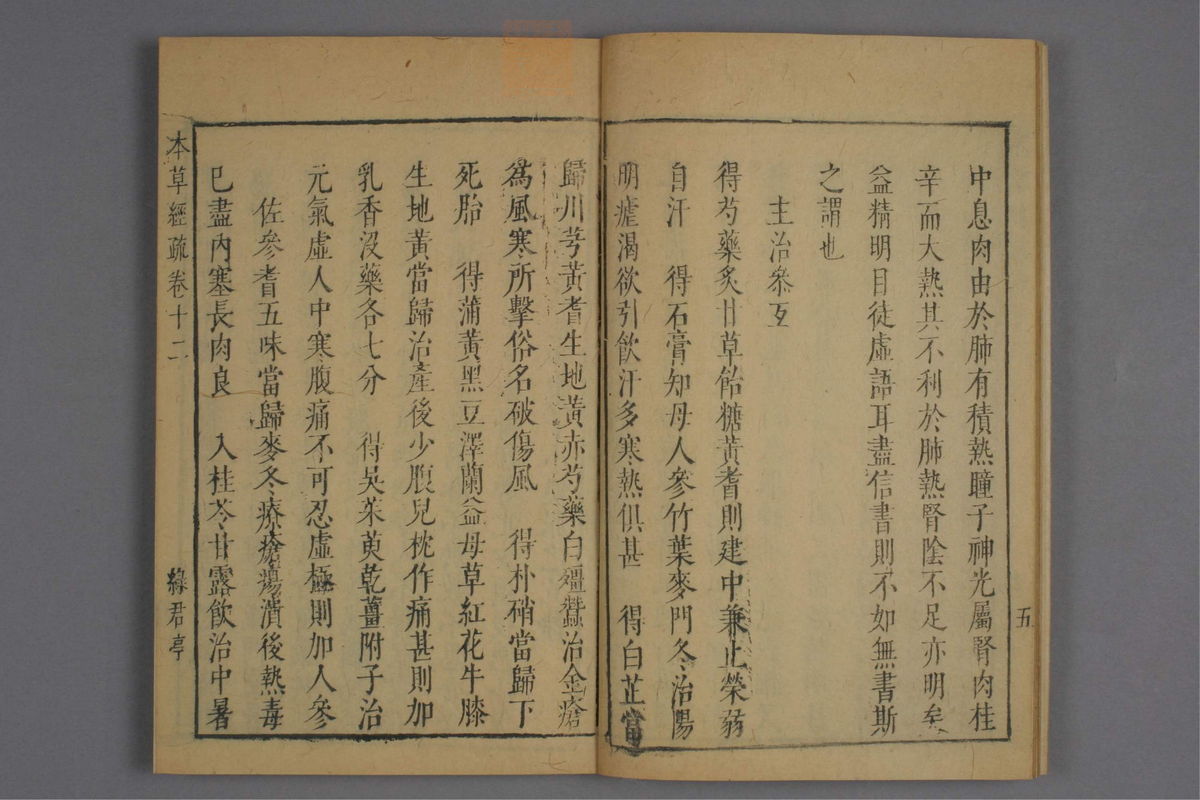 五
中息肉由於肺有積熱瞳子神光屬腎肉桂
辛而大熱其不利於肺熱腎陰不足亦明矣
益精明目徒虛語耳盡信書則不如無書斯
之謂也
主治叅互
得芍藥炙甘草飴糖黃耆則建中兼止榮弱
自汗 得石膏知母人參竹葉麥門冬治陽
明瘧渴欲引飲汗多寒熱俱甚 得白芷當
歸川芎黃耆生地黃赤芍藥白殭蠶治金瘡
為風寒所擊俗名破傷風 得朴硝當歸下
死胎 得蒲黃黑豆澤蘭益母草紅花牛膝
生地黃當歸治產後少腹兒枕作痛甚則加
乳香沒藥各七分 得吳茱萸乾薑附子治
元氣虛人中寒腹痛不可忍虛極則加人參
佐參耆五味當歸麥冬療瘡瘍潰後熱毒
巳盡內塞長肉良 入桂苓甘露飲治中暑
本草經疏卷十二 綠君亭